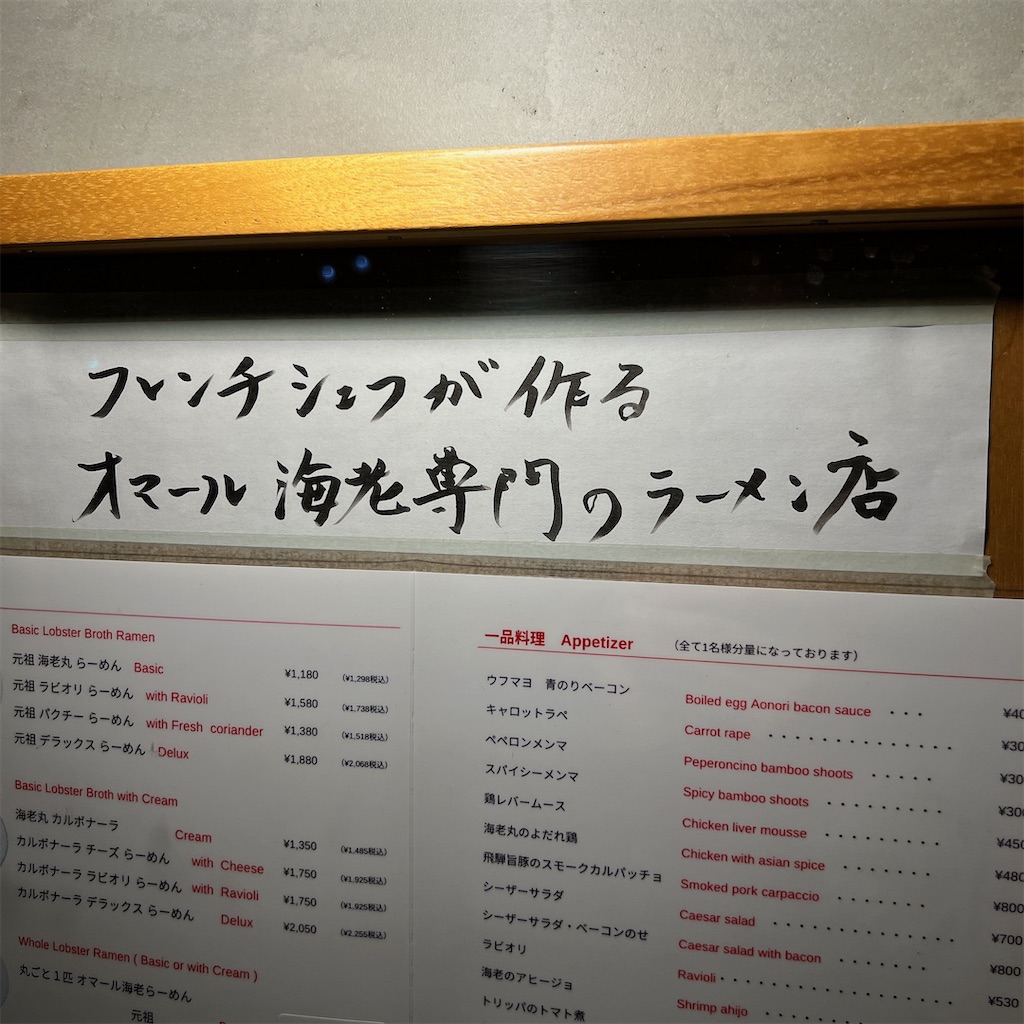 フレンチシェフが作る
オマール海老専門のラーメン店
Basic Lobster Broth Ramen
元祖 海老丸 らーめん Basic ¥1,180 (¥1,298税込)
元祖 ラビオリ らーめん with Ravioli ¥1,580 (¥1,738税込)
元祖 パクチー らーめん with Fresh coriander ¥1,380 (¥1,518税込)
元祖 デラックス らーめん Delux ¥1,880 (¥2,068税込)
Basic Lobster Broth with Cream
海老丸 カルボナーラ Cream ¥1,350 (¥1,485税込)
カルボナーラ チーズ らーめん with Cheese ¥1,750 (¥1,925税込)
カルボナーラ ラビオリ らーめん with Ravioli ¥1,750 (¥1,925税込)
カルボナーラ デラックス らーめん Delux ¥2,050 (¥2,255税込)
Whole Lobster Ramen ( Basic or with Cream )
丸ごと1匹 オマール海老らーめん
元祖
一品料理 Appetizer (全て1名様分量になっております)
ウフマヨ 青のりベーコン Boiled egg Aonori bacon sauce ・・・
キャロットラペ Carrot rape ・・・・・・・・・・・・・・
ペペロンメンマ Peperoncino bamboo shoots ・・・・・
スパイシーメンマ Spicy bamboo shoots ・・・・・・・・
鶏レバームース Chicken liver mousse ・・・・・・・・ ¥450
海老丸のよだれ鶏 Chicken with asian spice ・・・・・・ ¥480
飛騨旨豚のスモークカルパッチョ Smoked pork carpaccio ・・・・・・・ ¥800
シーザーサラダ Caesar salad ・・・・・・・・・・・・・ ¥700
シーザーサラダ・ベーコンのせ Caesar salad with bacon ・・・・・・・ ¥800
ラビオリ Ravioli・・・・・・・・・・・・・・・・・ ¥530
海老のアヒージョ Shrimp ahijo ・・・・・・・・・・・・
トリッパのトマト煮